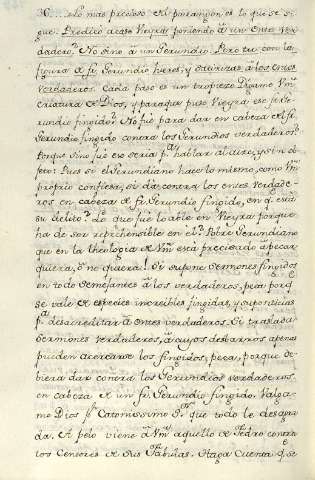 .... Lo mas precioso del parangon, es lo que se si
gue. Predicó acaso Vieyra poniendo à un Ente ver
dadero? No sino à un Gerundio. Pero tu con la
figura de fr. Gerundio hieres, y satirizas à los entes
verdaderos. Cada paso es un tropiezo. Digame Vm
criatura de Dios, y para que puso Vieyra ese fr. Ge
rundio fingido? No fué para dar en cabeza del fr.
Gerundio fingido contra los Gerundios verdaderos?
Porque sino fué eso seria pª hablar al aire, y sin ob
jeto: Pues si el Gerundiano hace lo mismo, como Vm
proprio confiesa, si dà contra los entes verdade
ros en cabeza de fr. Gerundio fingido, en q. està
su delito? Lo que fué loable en Vieyra porque
ha de ser reprehensible en el? Pobre Gerundiano
que en la theologia de Vm està preciado à pecar
quiera, ò no quiera! Si supone sermones fingidos
en todo semejantes à los verdaderos, peca porq
se vale de especies increibles fingidas, y supositicias
pª desacreditar à entes verdaderos. Si traslada
sermones verdaderos, à cuyos desbarros apenas
pueden acercarse los fingidos, peca, porque de
biera dar contra los Gerundios verdaderos.
en cabeza de un fr. Gerundio fingido. Valga
me Dios pr Catonissimo Sr que todo le desagra
da. A pelo viene à Vm aquello de Fedro contra
los Censores de sus Fabulas. Haga cuenta q. se